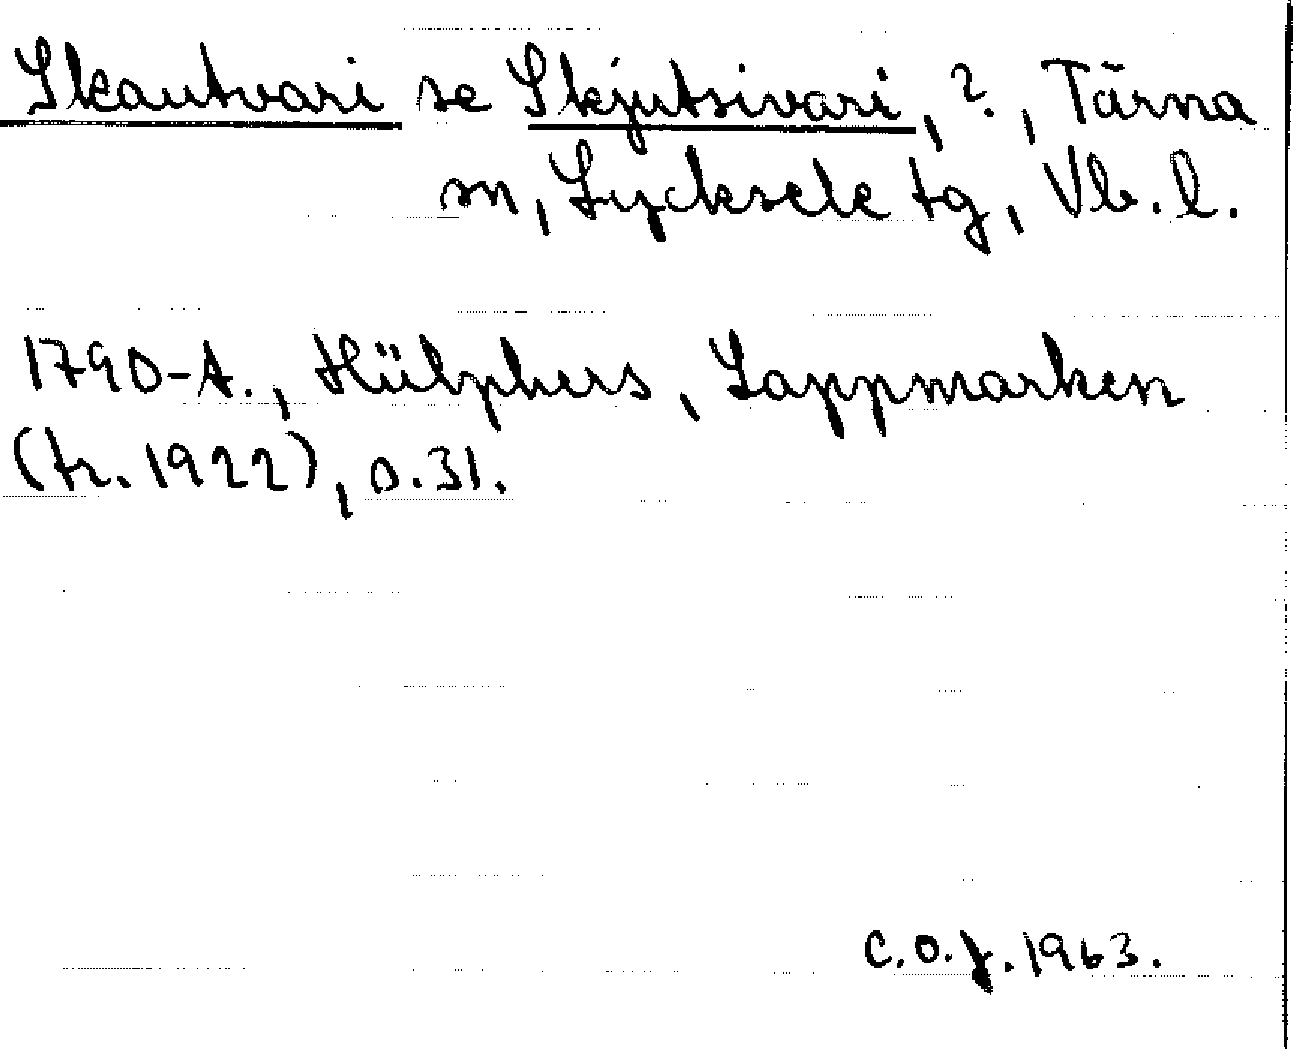 Skautvari se Skjutsivari, ?., Tärna
sn, Lycksele tg, Vb. l.
1790-t., Hülphers, Lappmarken
(tr. 1922), s. 31.
C.O.J. 1963.